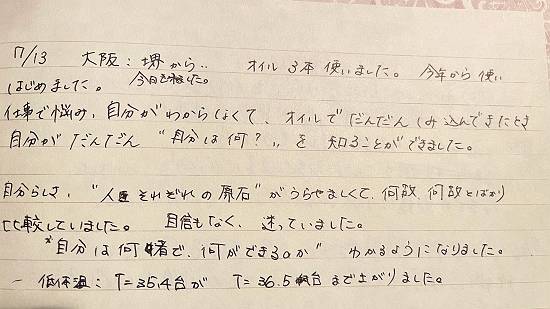 7/13 大阪：堺から‥ オイル3本使いました。今年から使い
はじめました。 今日も来ました。
仕事で悩み、自分がわからなくて、オイルでだんだんしみ込んできたとき
自分がだんだん "自分は何？" を知ることができました。
自分らしさ、"人それぞれの原石" がうらやましくて、何故、何故とばかり
比較していました。 自信もなく、迷っていました。
"自分は何者で、何ができるのか" わかるようになりました。
– 低体温：T=35.4台が T=36.5台まで上がりました。